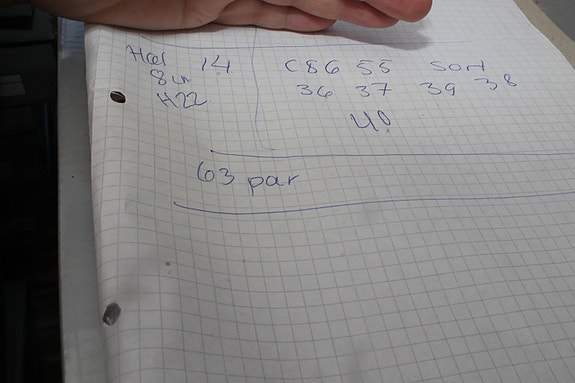 Hæl 14 C86 55 Sort
8 cm 36 37 39 38
H22 40
63 par